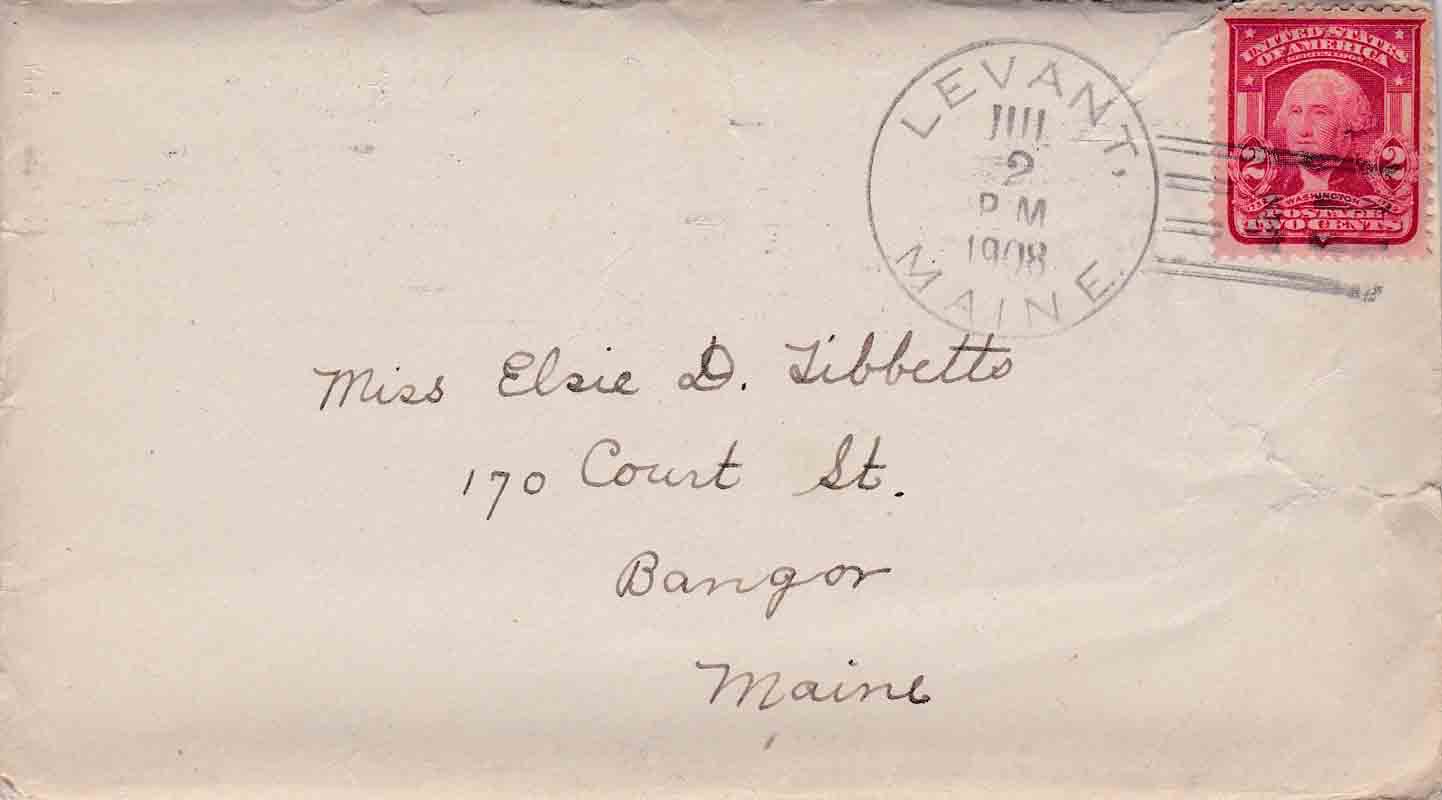 LEVANT,
JUL
2
PM
1908
MAINE
UNITED STATES
OF AMERICA
SERIES 1902
2 2
WASHINGTON
POSTAGE
TWO CENTS
Miss Elsie D. Tibbetts
170 Court St.
Bangor
Maine